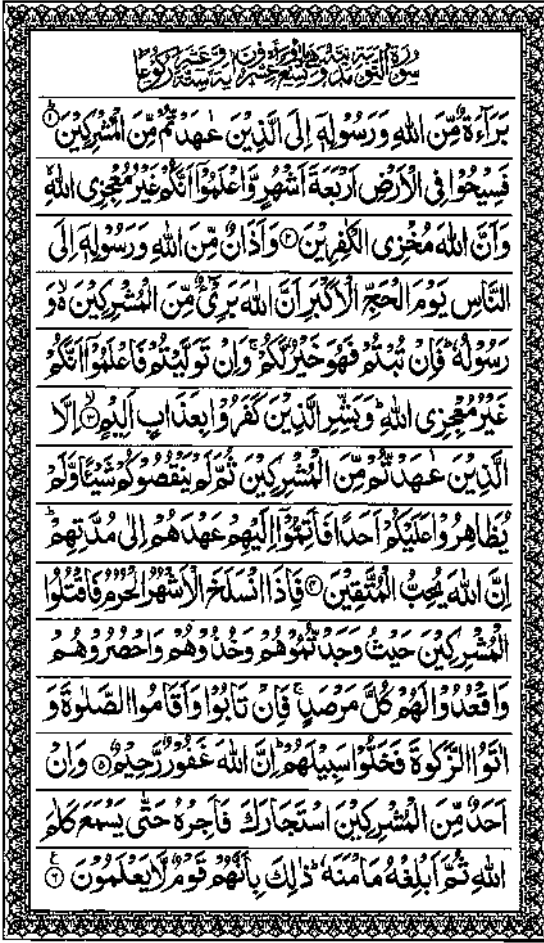 سُوْرَةُ التَّوْبَةِ مَدَنِيَّةٌ وَّهِيَ مِائَةٌ وَّتِسْعٌ وَّعِشْرُوْنَ اٰيَةً وَّسِتَّةَ عَشَرَ رُكُوْعًا
بَرَآءَةٌ مِّنَ اللّٰهِ وَرَسُوْلِهٖۤ اِلَى الَّذِيْنَ عٰهَدْتُّمْ مِّنَ الْمُشْرِكِيْنَ ؕ﴿۱﴾
فَسِيْحُوْا فِى الْاَرْضِ اَرْبَعَةَ اَشْهُرٍ وَّاعْلَمُوْۤا اَنَّكُمْ غَيْرُ مُعْجِزِى اللّٰهِ ۙ
وَاَنَّ اللّٰهَ مُخْزِى الْكٰفِرِيْنَ ﴿۲﴾ وَاَذَانٌ مِّنَ اللّٰهِ وَرَسُوْلِهٖۤ اِلَى
النَّاسِ يَوْمَ الْحَجِّ الْاَكْبَرِ اَنَّ اللّٰهَ بَرِىْٓءٌ مِّنَ الْمُشْرِكِيْنَ ۙ۬ وَ
رَسُوْلُهٗ ؕ فَاِنْ تُبْتُمْ فَهُوَ خَيْرٌ لَّكُمْ ۚ وَاِنْ تَوَلَّيْتُمْ فَاعْلَمُوْۤا اَنَّكُمْ
غَيْرُ مُعْجِزِى اللّٰهِ ؕ وَبَشِّرِ الَّذِيْنَ كَفَرُوْا بِعَذَابٍ اَلِيْمٍ ۙ﴿۳﴾ اِلَّا
الَّذِيْنَ عٰهَدْتُّمْ مِّنَ الْمُشْرِكِيْنَ ثُمَّ لَمْ يَنْقُصُوْكُمْ شَيْـًٔا وَّلَمْ
يُظَاهِرُوْا عَلَيْكُمْ اَحَدًا فَاَتِمُّوْۤا اِلَيْهِمْ عَهْدَهُمْ اِلٰى مُدَّتِهِمْ ؕ
اِنَّ اللّٰهَ يُحِبُّ الْمُتَّقِيْنَ ﴿۴﴾ فَاِذَا انْسَلَخَ الْاَشْهُرُ الْحُرُمُ فَاقْتُلُوا
الْمُشْرِكِيْنَ حَيْثُ وَجَدْتُّمُوْهُمْ وَخُذُوْهُمْ وَاحْصُرُوْهُمْ
وَاقْعُدُوْا لَهُمْ كُلَّ مَرْصَدٍ ۚ فَاِنْ تَابُوْا وَاَقَامُوا الصَّلٰوةَ وَ
اٰتَوُا الزَّكٰوةَ فَخَلُّوْا سَبِيْلَهُمْ ؕ اِنَّ اللّٰهَ غَفُوْرٌ رَّحِيْمٌ ﴿۵﴾ وَاِنْ
اَحَدٌ مِّنَ الْمُشْرِكِيْنَ اسْتَجَارَكَ فَاَجِرْهُ حَتّٰى يَسْمَعَ كَلٰمَ
اللّٰهِ ثُمَّ اَبْلِغْهُ مَاْمَنَهٗ ؕ ذٰلِكَ بِاَنَّهُمْ قَوْمٌ لَّا يَعْلَمُوْنَ ﴿۶﴾ ع